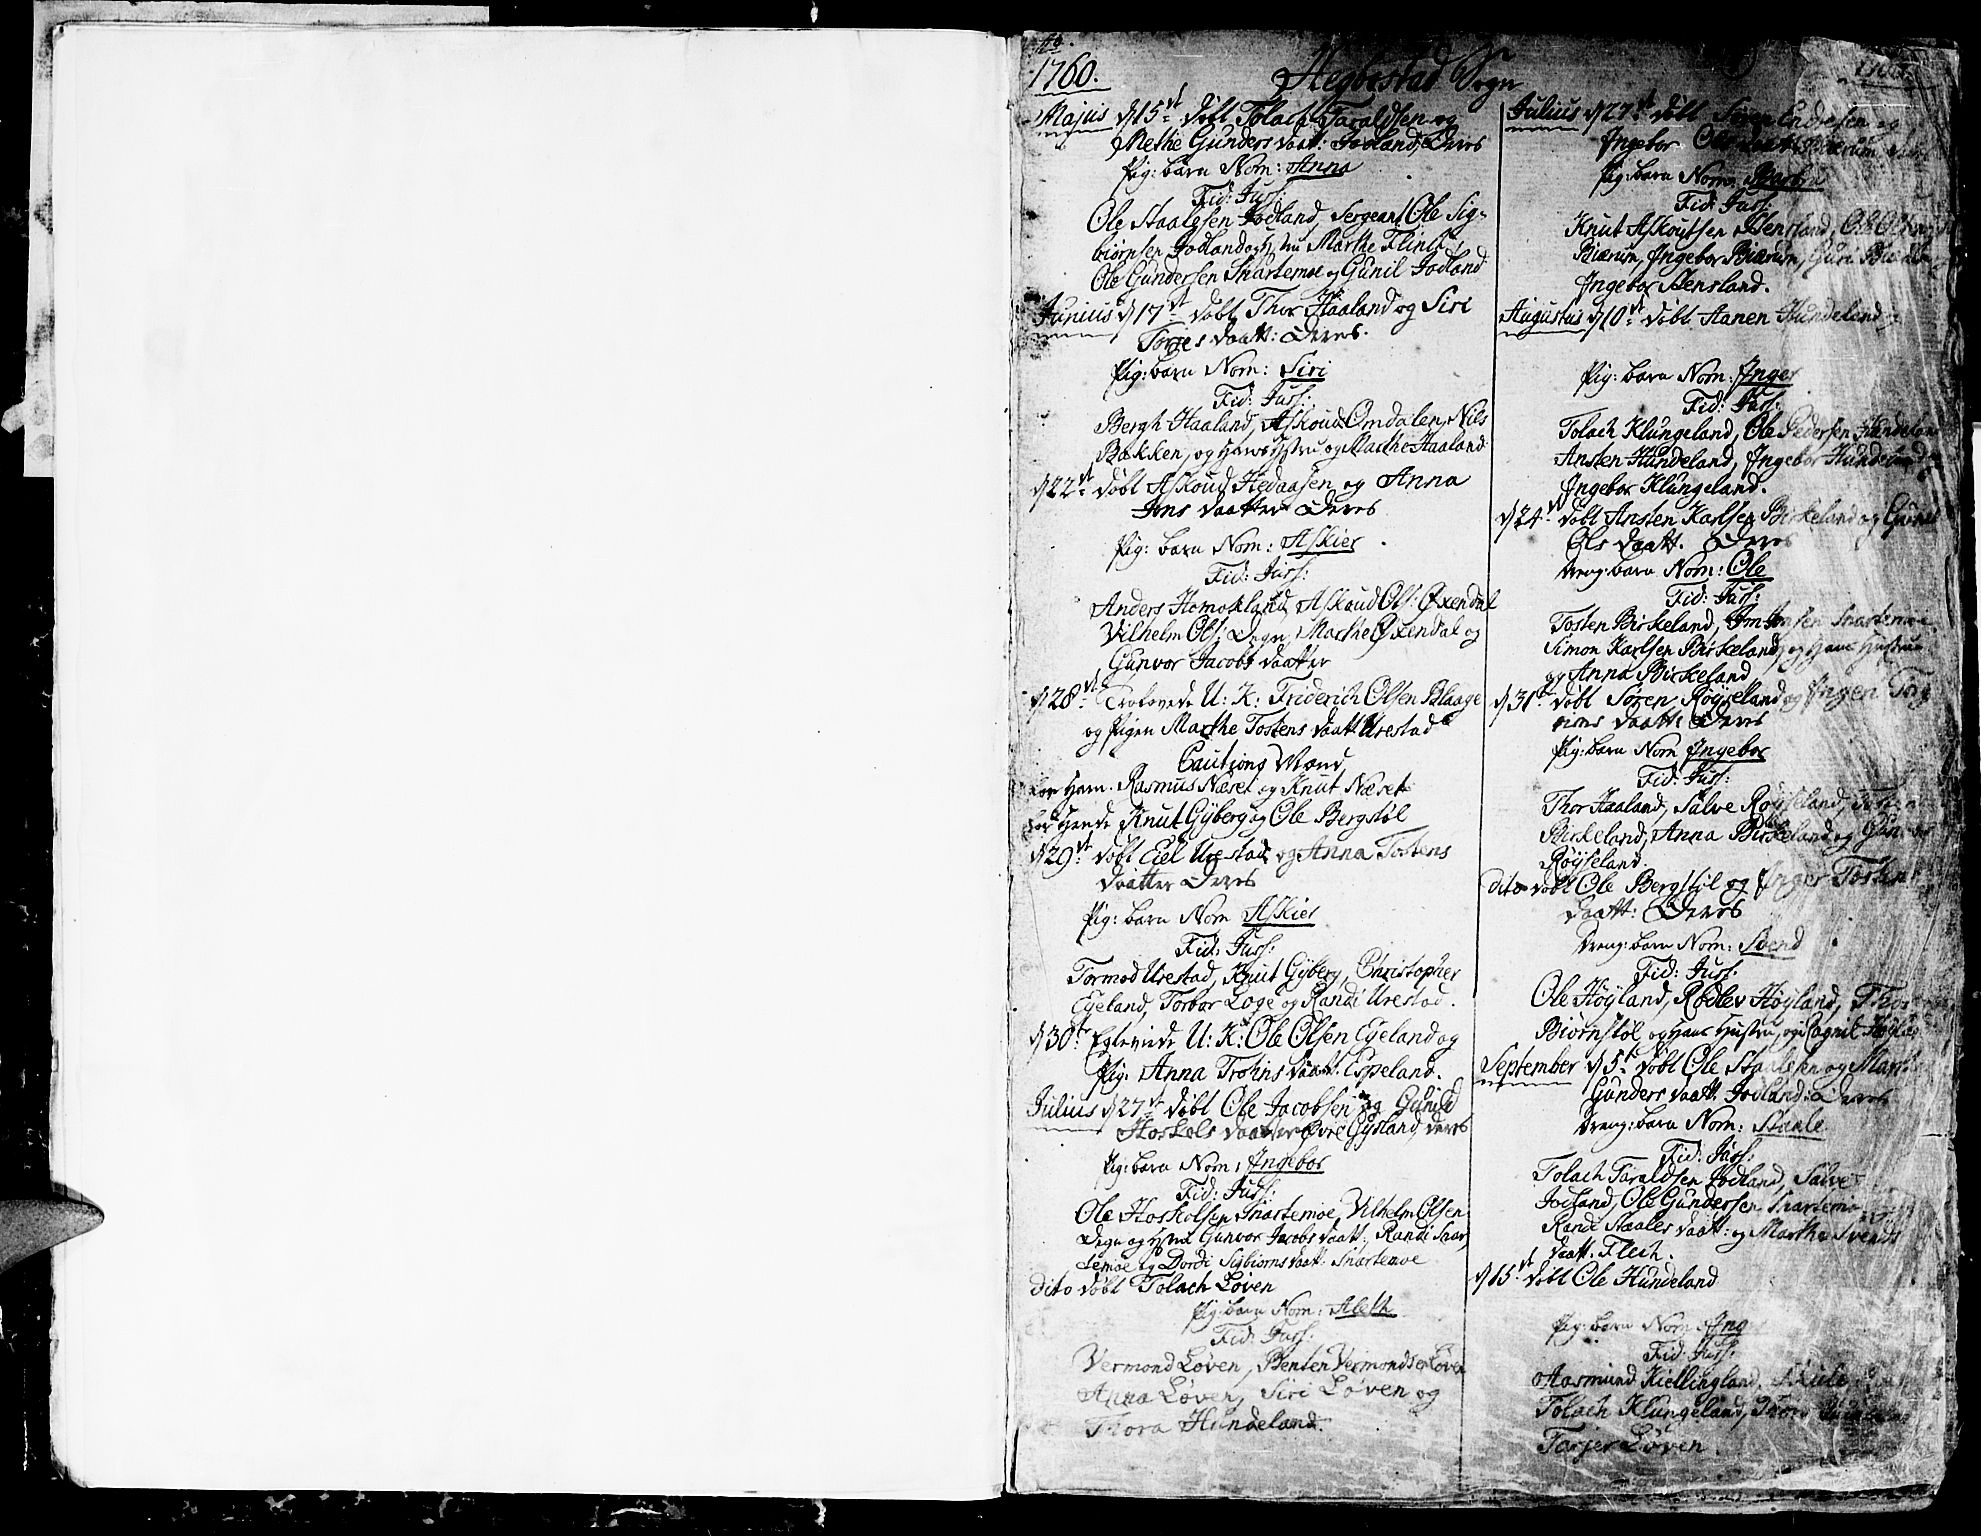 Ao.
1760. Hegbestad Sogn
Majus d 15de døbt Tolach Taraldsen og
Methe Gunders daatt: Jodland, Deres
Pig: barn Nom: Anna
Fid: Juss:
Ole Staalesen Jodland, Sergeant Ole Sig-
biørnsen Jodland og Hustru Marthe Flinth,
Ole Gundersen Snartemoe og Gunil Jodland
Junius d 17de døbt Thor Haaland og Siri
Torjes daatt: Deres
Pig: barn Nom: Siri
Fid: Juss:
Bergh Haaland, Askoud Omdalen, Nils
Bakken, og Hans Hstru og Marthe Haaland
d 22de døbt Askoud Hedaasen og Anna
Jens daatter Deres
Pig: barn Nom: Askier
Fid: Juss:
Anders Homokland, Askoud Ols: Øxendal
Vilhelm Ols: Degn, Marthe Øxendal og
Gunvor Jacobs daatter
d 28de Trolovede U: K: Friderich Olsen Blaage
og Pigen Marthe Tostens daatt: Urestad
Cautions Mænd
for Ham. Rasmus Næset og Knut Næset
for Hende Knut Gyberg og Ole Bergstøl
d 29de døbt Eiel Urestad og Anna Tostens
daatter Deres
Pig: barn Nom Askier
Fid: Juss:
Tormod Urestad, Knut Gyberg, Christopher
Egeland, Torbor Loge og Randi Urestad.
d 30te Egteviede U: K: Ole Olsen Egeland og
Pig: Anna Trohns daatt: Espeland.
Julius d 27de døbt Ole Jacobsen og Gunild
Hoskols daatter Øvre Gysland, deres
Pig: barn Nom: Ingebor
Fid: Juss:
Ole Hoskolsen Snartemoe, Vilhelm Olsen
Degn og Hstru Gunvor Jacobs daatt:, Randi Snar
temoe og Dordi Sigbiorns daatt: Snartemoe
dito døbt Tolach Løven
Pig: barn Nom: Aleth
Fid: Juss:
Vermond Løven, Benten Vermondsen Løven
Anna Løven, Siri Løven og
Thora Hundeland.
Julius d 27de døbt Søren Endresen og
Ingebor Ols daatt: Birum
Pig: barn Nom:
Fid: Juss:
Knut Askoutsen Stensland, Ole
Birum, Ingebor Birum, Guri
Ingebor Stensland.
Augustus d 10de døbt Aanen Hundeland
Pig: barn Nom: Inger
Fid: Juss:
Tolach Klungeland, Ole Pedersen Hundeland
Ansten Hundeland, Ingebor Hundeland
Ingebor Klungeland.
d 24de døbt Ansten Karlsen Birkeland og Gunil
Ols daatt. Deres
Dreng: barn Nom: Ole
Fid: Juss:
Tosten Birkeland, Snartemoe,
Simon Karlsen Birkeland, og Hans Hustrue
og Anna Birkeland
d 31te døbt Søren Røyseland og Ingen Torg
rims daatt: Deres
Pig: barn Nom Ingebor
Fid: Juss:
Thor Haaland, Salve Røyseland, Tosten
Birkeland, Anna Birkeland og Gunvor
Røyseland.
dito døbt Ole Bergstøl og Inger Tosten
daatt: Deres
Dreng: barn Nom: Svend
Fid: Juss:
Ole Høyland, Rødlev Høyland, Thor
Biørnstøl og Hans Hustru, og Ragnil
September d 5te døbt Ole Staalesen og Marthe
Gunders daatt. Jodland: Deres
Dreng: barn Nom: Staale
Fid: Juss:
Tolach Taraldsen Jodland, Salve
Jodland, Ole Gundersen Snartemoe,
Randi Staales daatt: og Marthe Svends
daatt. Flech.
d 15de døbt Ole Hundeland
Pig: barn Nom: Inger
Fid: Juss:
Aasmund Kiellingland,
Tolach Klungeland, Thore
Tarjer Løven.